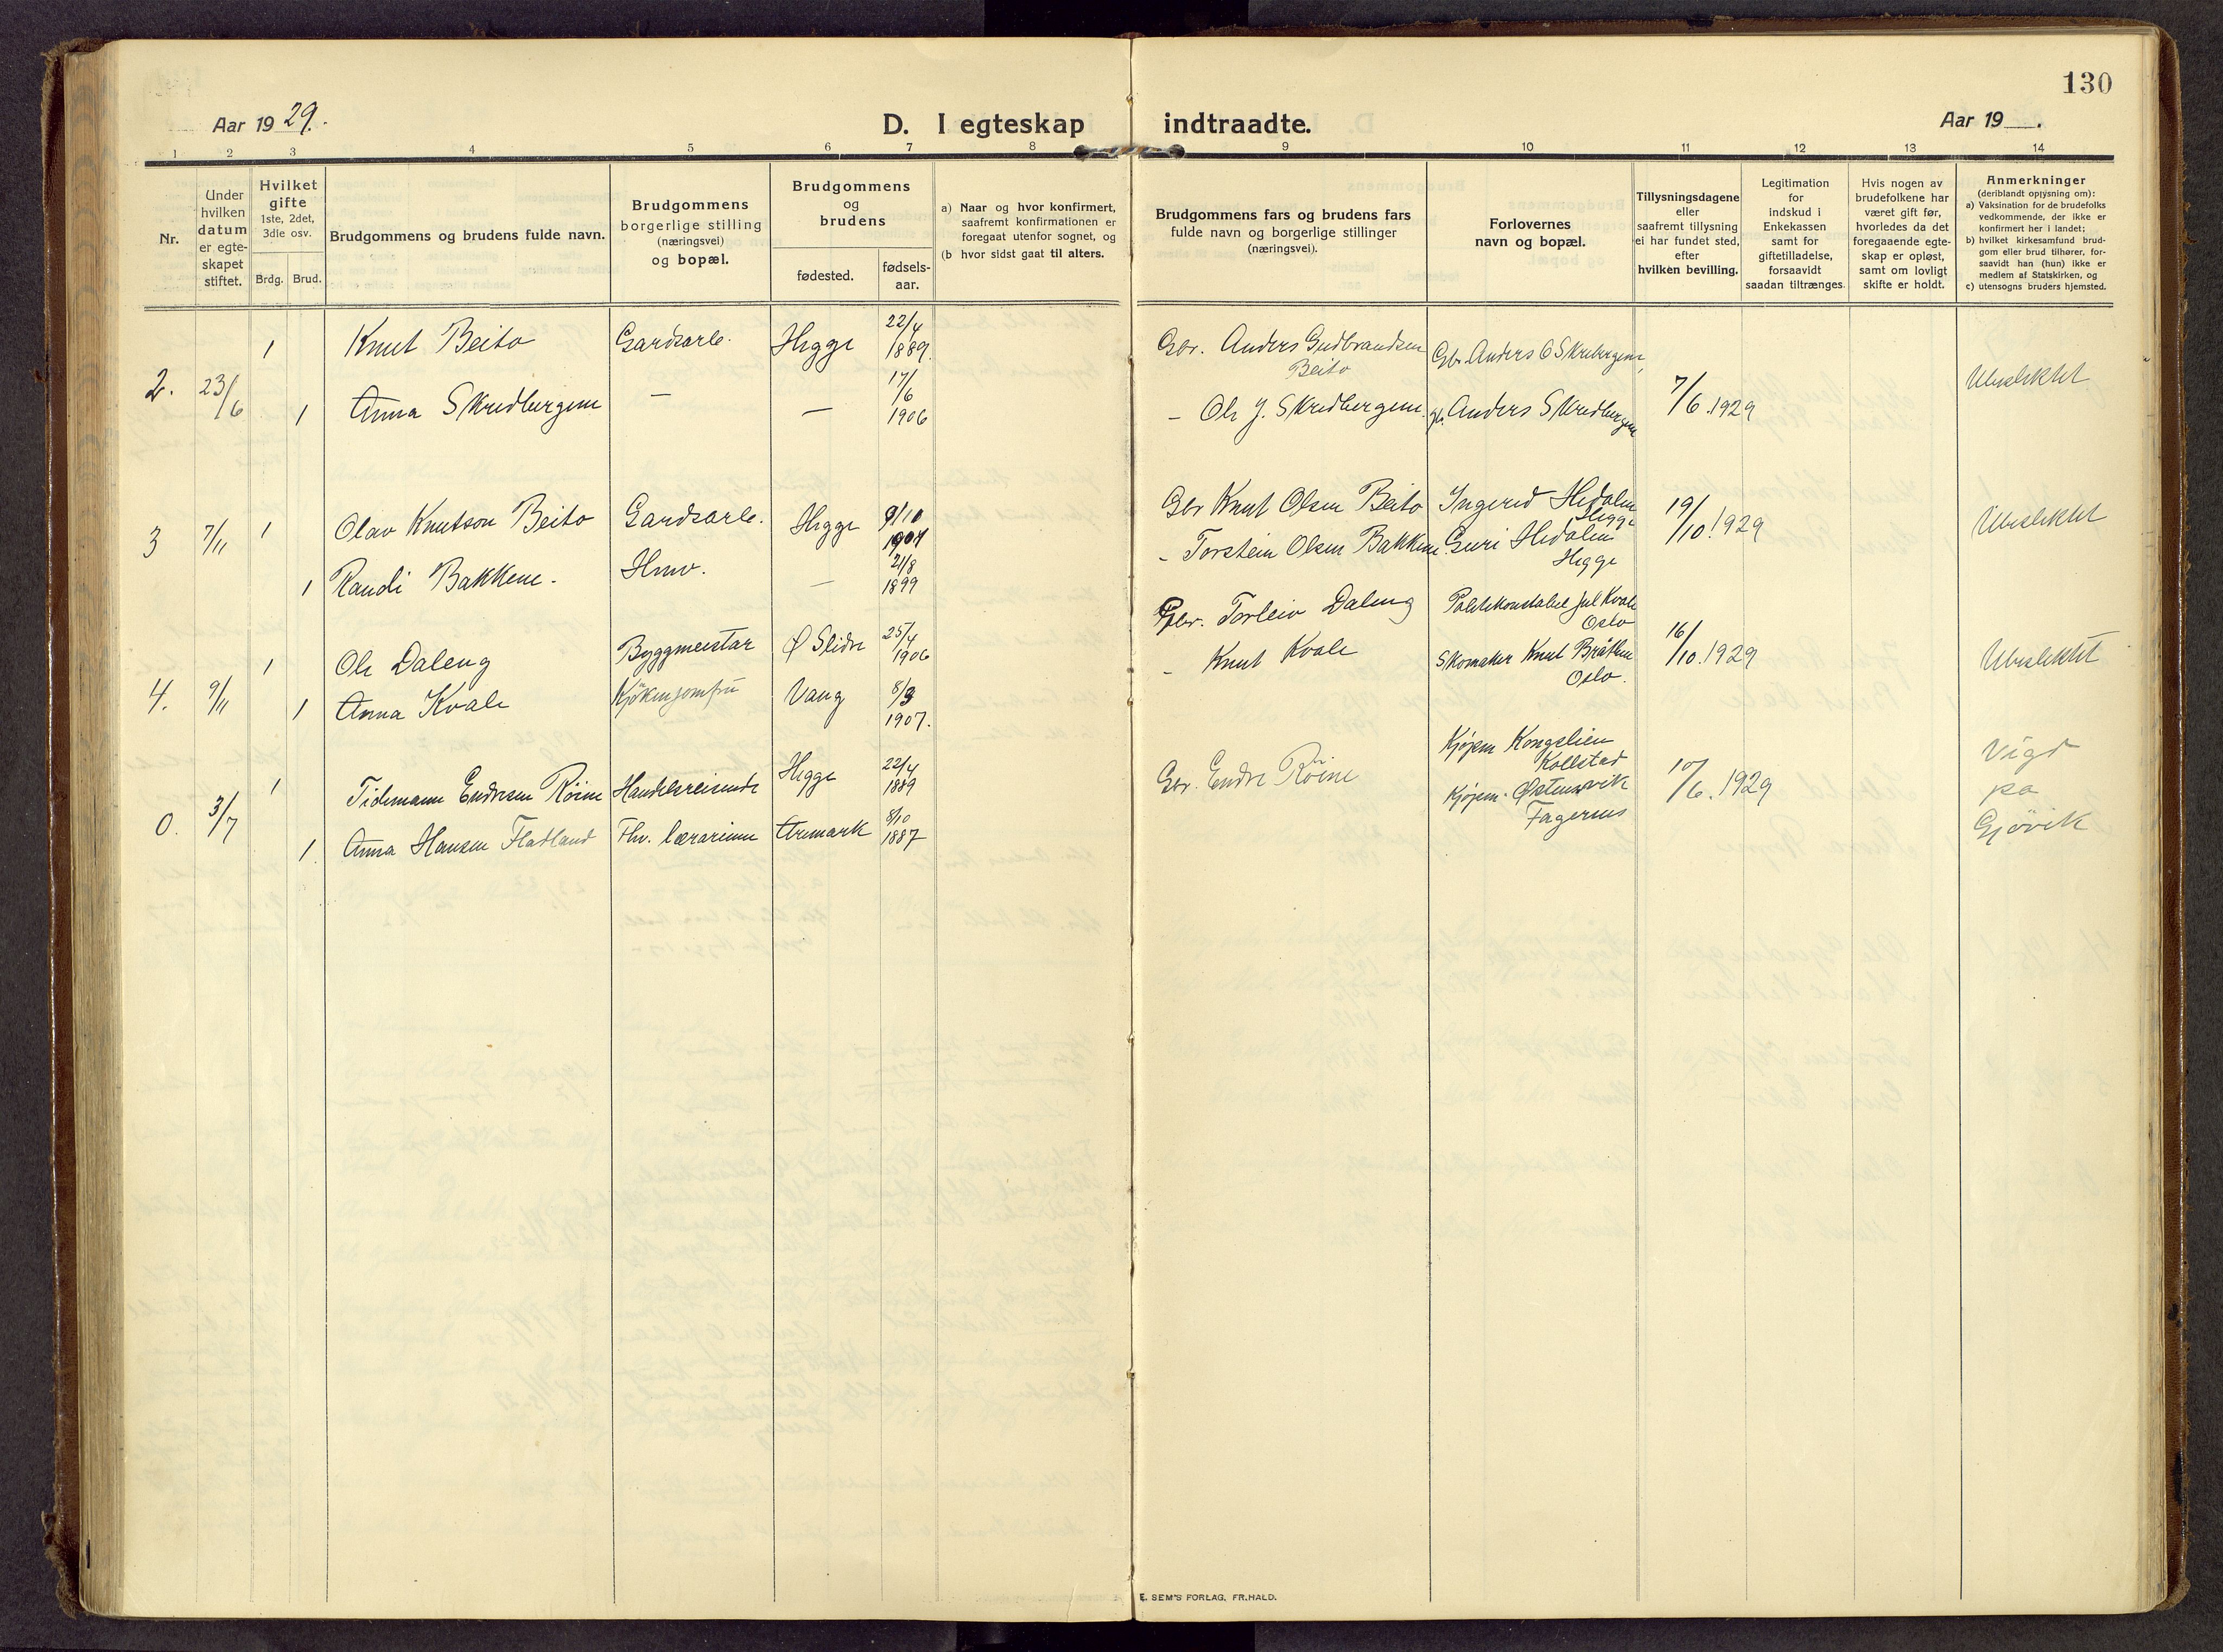 130
Aar 1929.
D. I egteskap indtraadte.
Aar 19__.
1 2 3 4 5 6 7 8 9 10 11 12 13 14
Nr.
Under hvilken datum er egte-skapet stiftet.
Hvilket gifte
1ste, 2det, 3die osv.
Brdg. Brud.
Brudgommens og brudens fulde navn.
Brudgommens borgerlige stilling (næringsvei) og bopæl.
Brudgommens og brudens
fødested.
fødsels-aar.
a) Naar og hvor konfirmert, saafremt konfirmationen er foregaat utenfor sognet, og
(b hvor sidst gaat til alters.
Brudgommens fars og brudens fars fulde navn og borgerlige stillinger (næringsvei).
Forlovernes navn og bopæl.
Tillysningsdagene eller saafremt tillysning ei har fundet sted, efter hvilken bevilling.
Legitimation for indskud i Enkekassen samt for giftetilladelse, forsaavidt saadan tiltrænges.
Hvis nogen av brudefolkene har været gift før, hvorledes da det foregaaende egte-skap er opløst, samt om lovligt skifte er holdt.
Anmerkninger
(deriblandt oplysning om):
a) Vaksination for de brudefolks vedkommende, der ikke er konfirmert her i landet;
b) hvilket kirkesamfund brud-gom eller brud tilhører, for-saavidt han (hun) ikke er medlem af Statskirken, og
c) utensogns bruders hjemsted.
2. 23/6
1 Knut Beito Gardsarb. Hegge 22/4 1889.
Gbr. Anders Gudbrandsen Beito
Gbr. Anders O Skredbergene,
1 Anna Skredbergene — — 17/6 1906
– Ole J. Skredbergene
Anders Skredbergene
7/6.1929
Ubeslektet
3 7/11
1 Olav Knutson Beito Gardsarb. Hegge 9/10 1904
Gbr Knut Olsen Beito
Ingerid Hedalen Hegge
1 Randi Bakkene. Hmv. — 21/8 1899
– Torstein Olsen Bakkene
Guri Hedalen Hegge
19/10.1929
Ubeslektet
4. 9/11
1 Ole Daleng Byggmeistar Ø Slidre 25/4 1906
Gbr. Torleiv Daleng
Politikonstabel Jul Kvale Oslo
1 Anna Kvale Kjökenjomfru Vang 8/3 1907.
– Knut Kvale
Skomaker Knut Bråten Oslo.
16/10.1929
Ubeslektet
0. 3/7
1 Tidemann Endresen Röine Handelsreisende Hegge 22/4 1889
Gbr. Endre Röine
Kjøpm Kongslien
1. Anna Hansen Flatland Fhv. lærarinne Aremark 8/10 1887
Kjøpm. Østensvik Fagernes
10/6.1929
Vigd pa Gjövik
E. SEM'S FORLAG, FR.HALD.